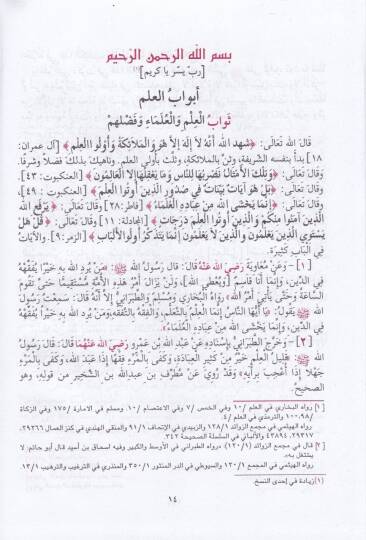 بسم الله الرحمن الرحيم
[رب يسّر يا كريم](١)
أبواب العلم
ثواب العِلْمِ وَالْعُلَمَاءِ وَفَضْلِهِمْ
قَالَ الله تَعَالَى: ﴿شَهِدَ اللهُ أَنَّهُ لاَ إِلَهَ إِلاَّ هُوَ وَالْمَلاَئِكَةُ وَأُولُوا الْعِلْمِ﴾ [آل عمران:
١٨] بدأ بنفسه الشريفة، وثنَّى بالملائكة، وثلَّث بأولي العلم. وناهيك بذلك فضلاً وشرفًا.
وَقَالَ تَعَالَى: ﴿وَتِلْكَ الأَمْثَالُ نَضْرِبُهَا لِلنَّاسِ وَمَا يَعْقِلُهَا إِلاَّ الْعَالِمُونَ﴾ [العنكبوت: ٤٣].
وقَالَ تَعَالَى: ﴿بَلْ هُوَ آيَاتٌ بَيِّنَاتٌ فِي صُدُورِ الَّذِينَ أُوتُوا الْعِلْمَ﴾ [العنكبوت: ٤٩]،
وقَالَ تَعَالَى: ﴿إِنَّمَا يَخْشَى اللهَ مِنْ عِبَادِهِ الْعُلَمَاءُ﴾ [فاطر: ٢٨] وقَالَ تَعَالَى: ﴿يَرْفَعِ الله
الَّذِينَ آمَنُوا مِنْكُمْ وَالَّذِينَ أُوتُوا الْعِلْمَ دَرَجَاتٍ﴾ [المجادلة: ١١] وقَالَ تَعَالَى: ﴿قُلْ هَلْ
يَسْتَوِي الَّذِينَ يَعْلَمُونَ وَالَّذِينَ لاَ يَعْلَمُونَ إِنَّمَا يَتَذَكَّرُ أُولُوا الأَلْبَابِ﴾ [الزمر: ٩]. والآيَاتُ
فِي الْبَابِ كَثِيرَة.
[١] - وَعَنْ مُعَاوِيَةَ رَضِيَ اللهُ عَنْهُ قَالَ: قَالَ رَسُولُ اللهِ ﷺ: «مَنْ يُرِدِ الله بِهِ خَيْرًا يُفَقِّهْهُ
فِي الدِّينِ، وَإِنَّمَا أَنَا قَاسِمٌ [وَيُعْطِي الله]، وَلَنْ يَزَالَ أَمْرُ هَذِهِ الأُمَّةِ مُسْتَقِيمًا حَتَّى تَقُومَ
السَّاعَةُ وَحَتَّى يَأْتِيَ أَمْرُ اللهِ» رَوَاهُ الْبُخَارِي وَمُسْلِمٌ وَالطَّبَرَانِيُّ إِلاَّ أَنَّهُ قَالَ: سَمِعْتُ رَسُولَ
اللهِ ﷺ يَقُولُ: «يَا أَيُّهَا النَّاسُ إِنَّمَا الْعِلْمُ بِالتَّعَلُّمِ، وَالْفِقْهُ بِالتَّفَقُّهِ، وَمَنْ يُرِدِ الله بِهِ خَيْرًا يُفَقِّهْهُ
فِي الدِّينِ، وَإِنَّمَا يَخْشَى الله مِنْ عِبَادِهِ الْعُلَمَاءُ».
[٢] - وَخَرَّجَ الطَّبَرَانِيُّ بِإِسْنَادِهِ عَنْ عَبْدِ اللهِ بْنِ عَمْرٍو رَضِيَ اللهُ عَنْهُمَا قَالَ: قَالَ رَسُولُ
اللهِ ﷺ: «قَلِيلُ الْعِلْمِ خَيْرٌ مِنْ كَثِيرِ الْعِبَادَةِ، وَكَفَى بِالْمَرْءِ فِقْهًا إِذَا عَبَدَ الله، وَكَفَى بِالْمَرْءِ
جَهْلاً إِذَا أُعْجِبَ بِرَأْيِهِ» وَقَدْ رُوِيَ عَنْ مُطَرِّف بن عبدالله بن الشخير من قوله، وهو
الصحيح.
[١] رواه البخاري في العلم /١٠ وفي الخمس /٧ وفي الاعتصام /١٠، ومسلم في الامارة /١٧٥ وفي الزكاة
/٩٨،١٠٠ والترمذي في العلم /٤.
رواه الهيثمي في مجمع الزوائد ١٢٨/١ والزبيدي في الإتحاف ٩١/١ والمتقي الهندي في كنز العمال ٢٩٢٦٦،
٢٩٣١٧، ٤٣٨٩٤ والألباني في السلسلة الصحيحة ٣٤٢
[٢] قال في مجمع الزوائد (١٢٠/١) «رواه الطبراني في الأوسط والكبير وفيه إسحاق بن أسيد قال أبو حاتم: لا
يشتغل به».
رواه الهيثمي في المجمع ١٢٠/١ والسيوطي في الدر المنثور ٣٥٠/١ والمنذري في الترغيب والترهيب ١٣/١.
(١) زيادة في إحدى النسخ.
١٤